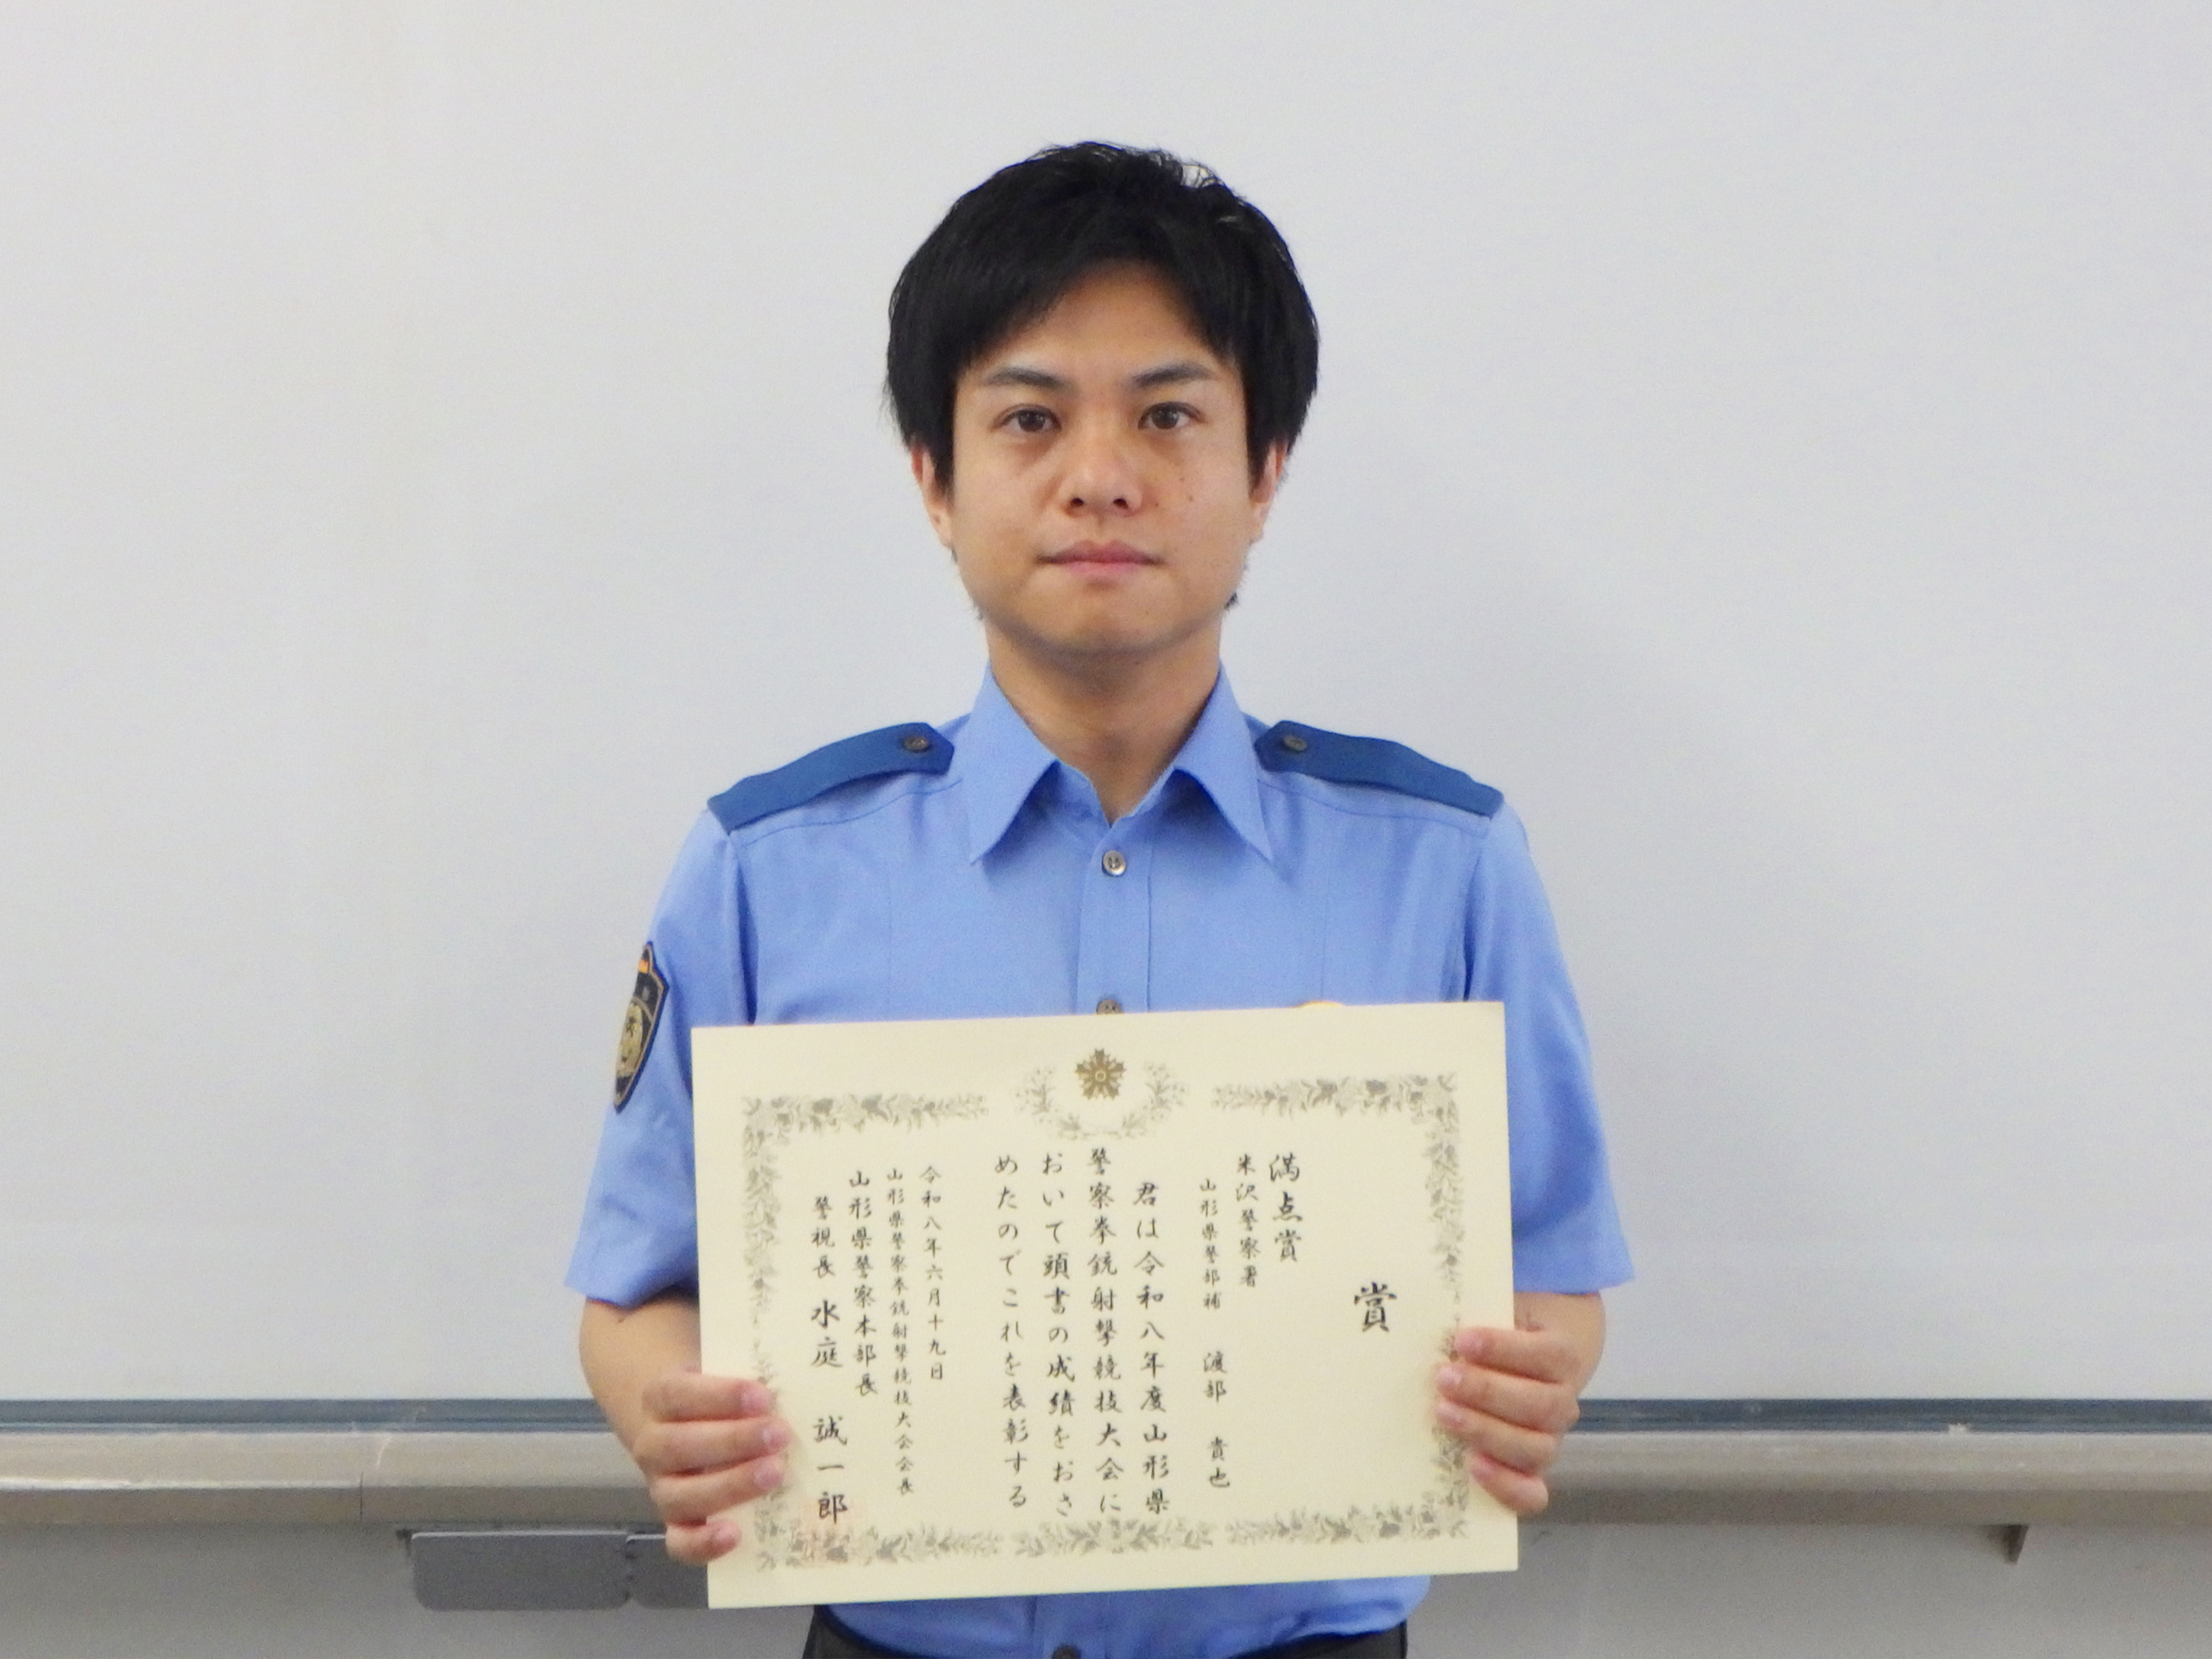 賞
満点賞
米沢警察署
山形県警部補 渡部 貴也
君は令和八年度山形県
警察拳銃射撃競技大会に
おいて頭書の成績をおさ
めたのでこれを表彰する
令和八年六月十九日
山形県警察拳銃射撃競技大会会長
山形県警察本部長
警視長 水庭 誠一郎